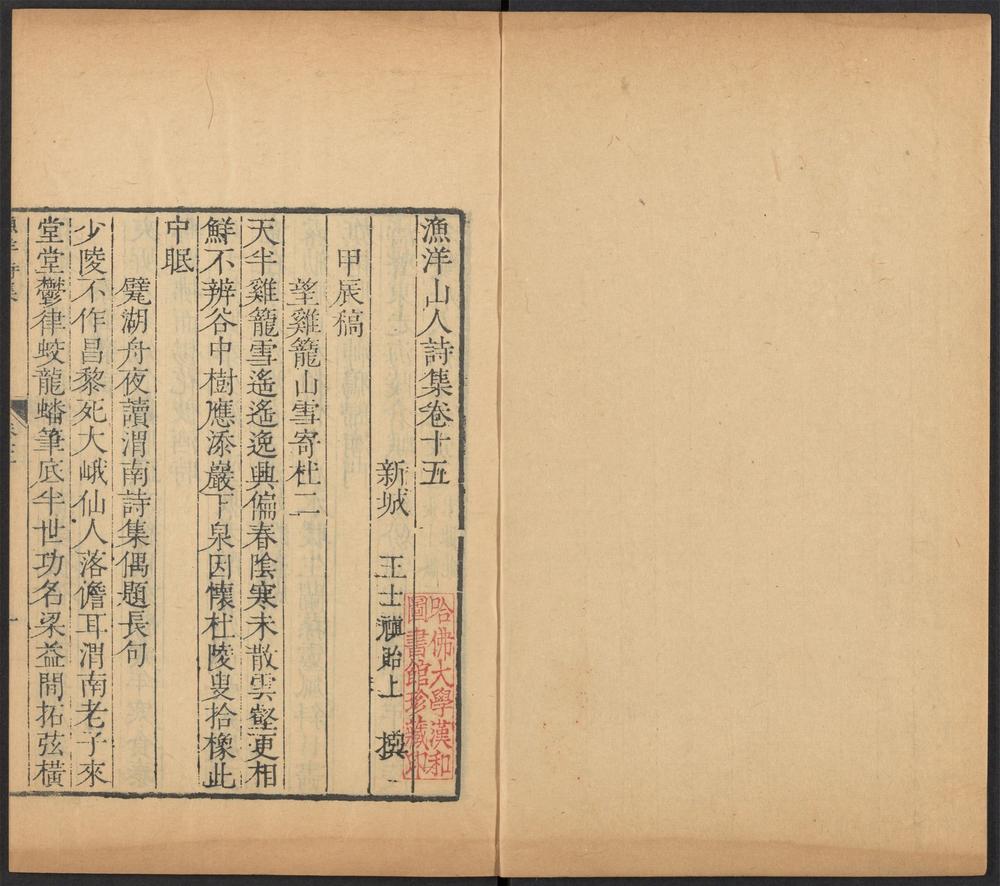 漁洋山人詩集卷十五
新城 王士禛貽上 撰
哈佛大學漢和
圖書館珍藏印
甲辰稿
望雞籠山雪寄杜二
天半雞籠雪遙遙逸興偏春陰寒未散雲壑更相
鮮不辨谷中樹應添巖下泉因懷杜陵叟拾橡此
中眠
甓湖舟夜讀渭南詩集偶題長句
少陵不作昌黎死大峨仙人落儋耳渭南老子來
堂堂鬱律蛟龍蟠筆底半世功名梁益間拓弦橫